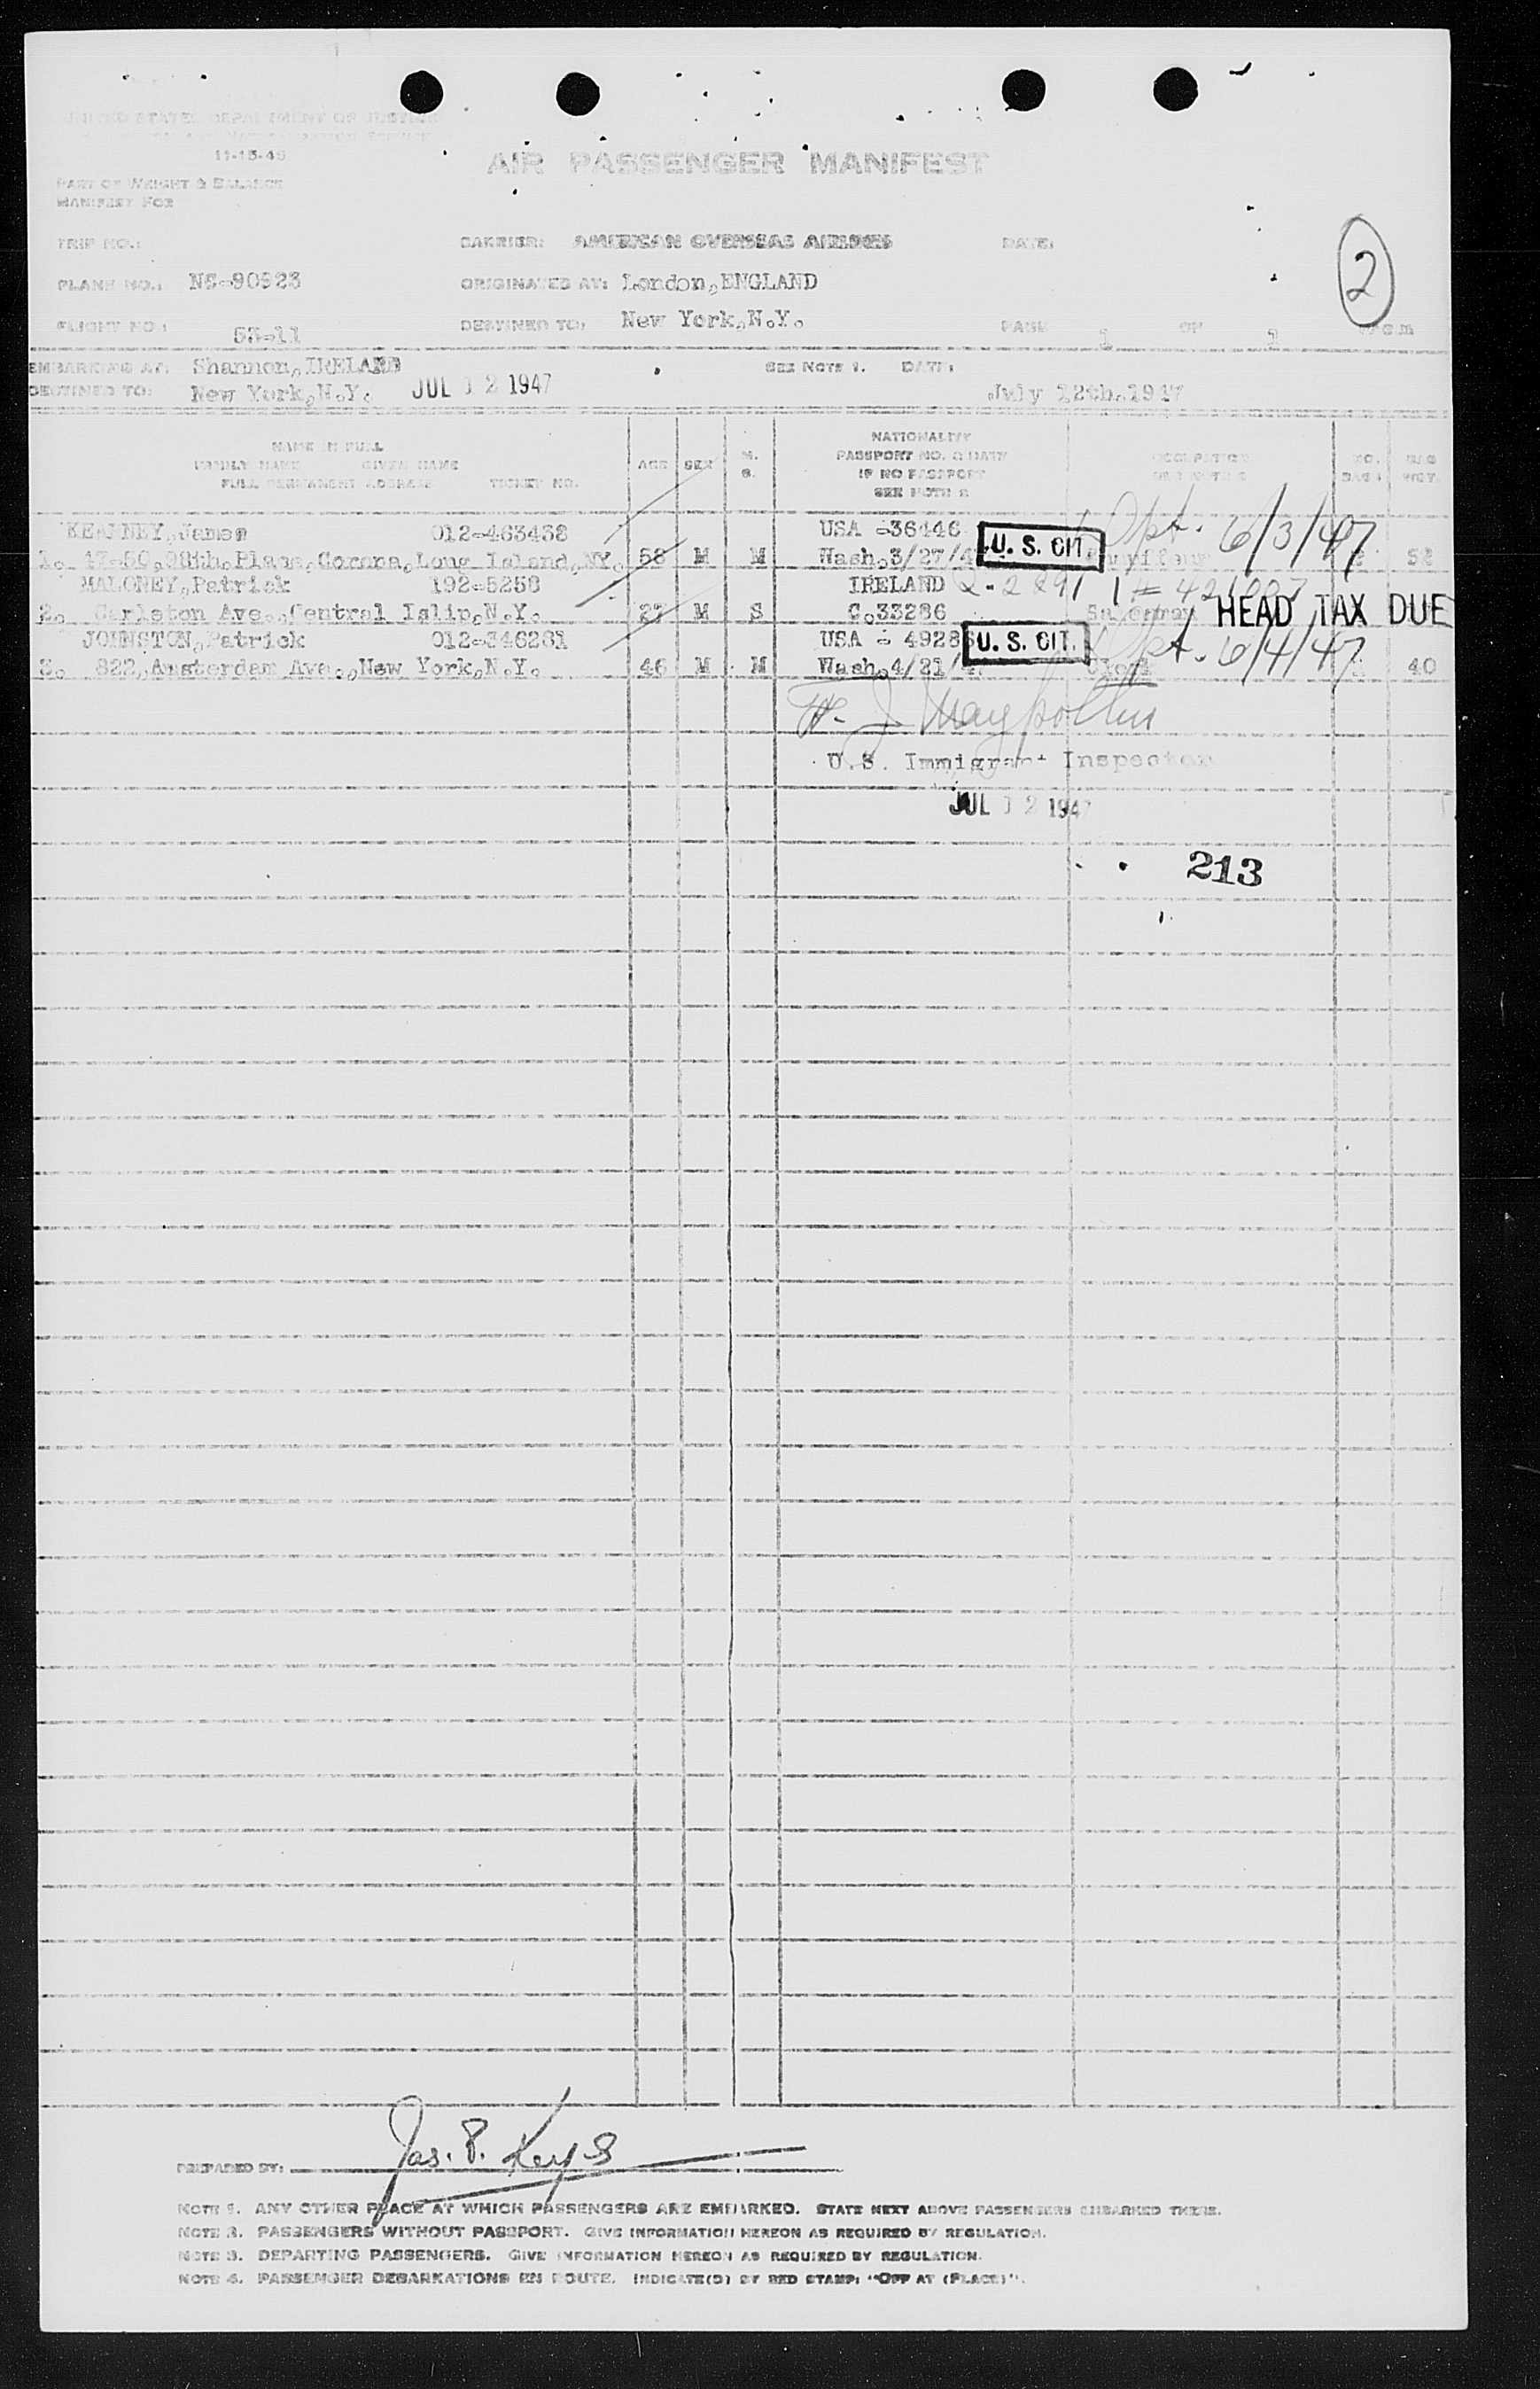 UNITED STATES DEPARTMENT OF JUSTICE
11-15-46
AIR PASSENGER MANIFEST
PART OF WEIGHT & BALANCE
MANIFEST FOR
TRIP NO.: CARRIER: AMERICAN OVERSEAS AIRLINES DATE:
2
PLANE NO.: NC-90923 ORIGINATED AT: London,ENGLAND
FLIGHT NO: 53-11 DESTINED TO: New York,N.Y. PAGE 1 OF 1
EMBARKING AT: Shannon,IRELAND SEE NOTE 1. DATE:
DESTINED TO: New York,N.Y. JUL 12 1947 July 12th.1947
NAME IN FULL
FAMILY NAME GIVEN NAME
FULL PERMANENT ADDRESS TICKET NO.
AGE SEX M. S.
NATIONALITY
PASSPORT NO. & DATE
IF NO PASSPORT
SEE NOTE 2
OCCUPATION
NO. BAGS BAG WGT.
KEARNEY,James 012-463438 USA -36446 Dpt. 6/3/47
1. 98th.Place,Corona,Long Island,NY. 58 M M Wash.3/27/4 U. S. CIT.
MALONEY,Patrick 192-5258 IRELAND
2. Carleton Ave.,Central Islip,N.Y. M S C.33286 HEAD TAX DUE
JOHNSTON,Patrick 012-346281 USA - 49286 U. S. CIT. Dpt. 6/4/47
3. 822,Amsterdam Ave.,New York,N.Y. 46 M M Wash.4/21/4 40
U.S. Immigrant Inspector
JUL 12 1947
213
PREPARED BY: Jas. P. Keys
NOTE 1. ANY OTHER PLACE AT WHICH PASSENGERS ARE EMBARKED. STATE NEXT ABOVE PASSENGERS EMBARKED THERE.
NOTE 2. PASSENGERS WITHOUT PASSPORT. GIVE INFORMATION HEREON AS REQUIRED BY REGULATION.
NOTE 3. DEPARTING PASSENGERS. GIVE INFORMATION HEREON AS REQUIRED BY REGULATION.
NOTE 4. PASSENGER DEBARKATIONS EN ROUTE. INDICATE(D) BY RED STAMP: "OFF AT (PLACE)".